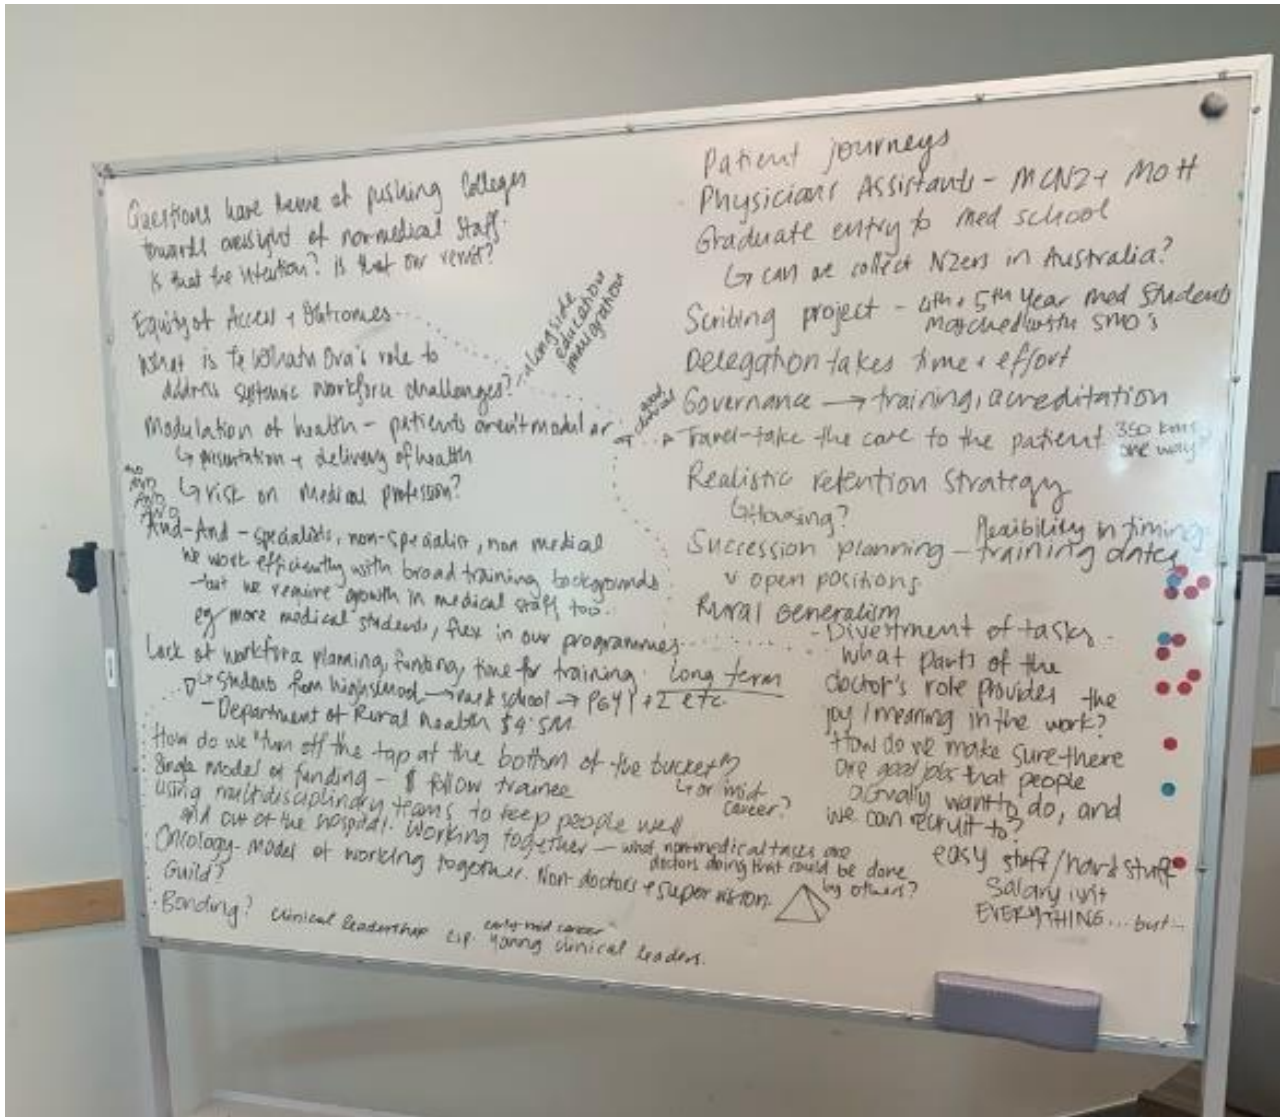 Questions have theme of pushing Colleges
towards oversight of non-medical staff.
Is that the intention? Is that our remit?
Equity of Access + Outcomes
What is Te Whatu Ora's role to
address systemic workforce challenges?
alongside
education
immigration
Modulation of health - patients aren't modular
↳ presentation + delivery of health
↳ risk on medical profession?
AND
AND
AND
And-And - specialists, non-specialist, non medical
We work efficiently with broad training backgrounds
- but we require growth in medical staff too.
eg more medical students, flex in our programmes
Lack of workforce planning, funding, time for training. Long term
↳ Students from highschool → med school → PGY1+2 etc.
- Department of Rural Health $4.5M
How do we "turn off the tap at the bottom of the bucket"?
↳ or mid
career?
Single model of funding - $ follow trainee
Using multidisciplinary teams to keep people well
and out of the hospital. Working together - what non-medical tasks are
doctors doing that could be done
by others?
Oncology-model of working together. Non-doctors + supervision
Guild?
Bonding?
Clinical leadership esp. young clinical leaders.
early-mid career
Patient journeys
Physicians Assistants - MCNZ + MoH
Graduate entry to med school
↳ can we collect NZers in Australia?
Scribing project - 4th + 5th Year Med Students
matched with SMO's
Delegation takes time + effort
Governance → training, acreditation
Travel-take the care to the patient 350 kms
one way?
Realistic retention strategy
↳ Housing?
Succession planning - flexibility in timing
training dates
v open positions
Rural Generalism
- Divestment of tasks.
What parts of the
doctor's role provides the
joy/meaning in the work?
How do we make sure there
are good jobs that people
actually want to do, and
we can recruit to?
easy stuff/hard stuff
Salary isn't
EVERYTHING... but...